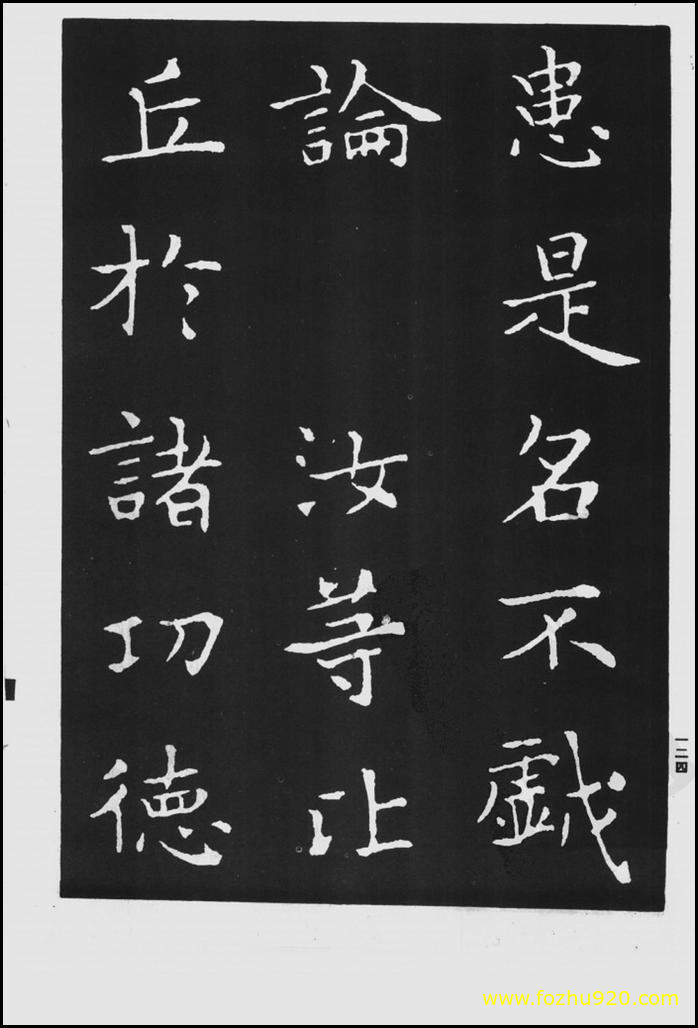 患是名不戯
論　汝等比
丘於諸功徳
一二四
www.fozhu920.com